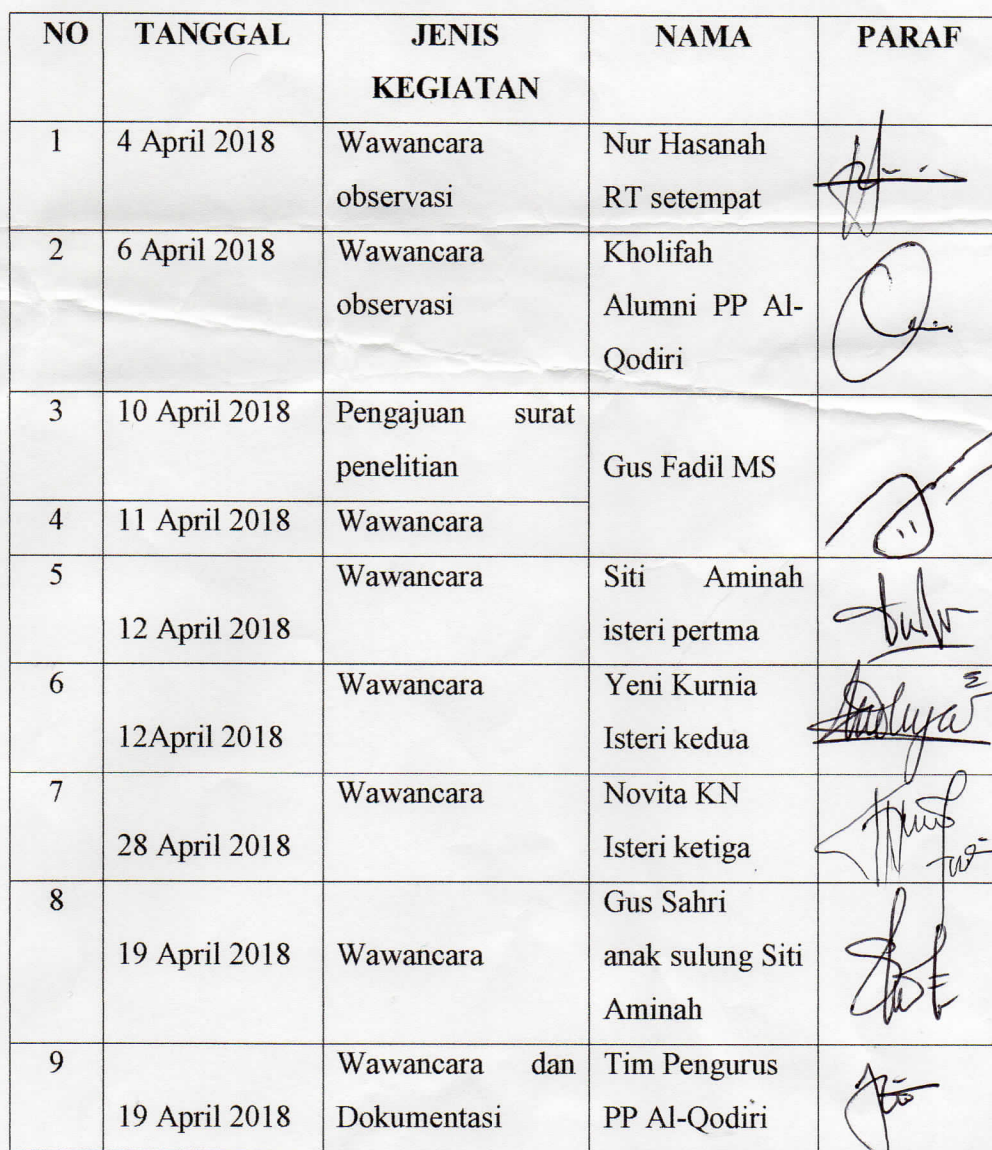 NO TANGGAL JENIS KEGIATAN NAMA PARAF
1 4 April 2018 Wawancara observasi Nur Hasanah RT setempat
2 6 April 2018 Wawancara observasi Kholifah Alumni PP Al-Qodiri
3 10 April 2018 Pengajuan surat penelitian Gus Fadil MS
4 11 April 2018 Wawancara
5 12 April 2018 Wawancara Siti Aminah isteri pertma
6 12April 2018 Wawancara Yeni Kurnia Isteri kedua
7 28 April 2018 Wawancara Novita KN Isteri ketiga
8 19 April 2018 Wawancara Gus Sahri anak sulung Siti Aminah
9 19 April 2018 Wawancara dan Dokumentasi Tim Pengurus PP Al-Qodiri